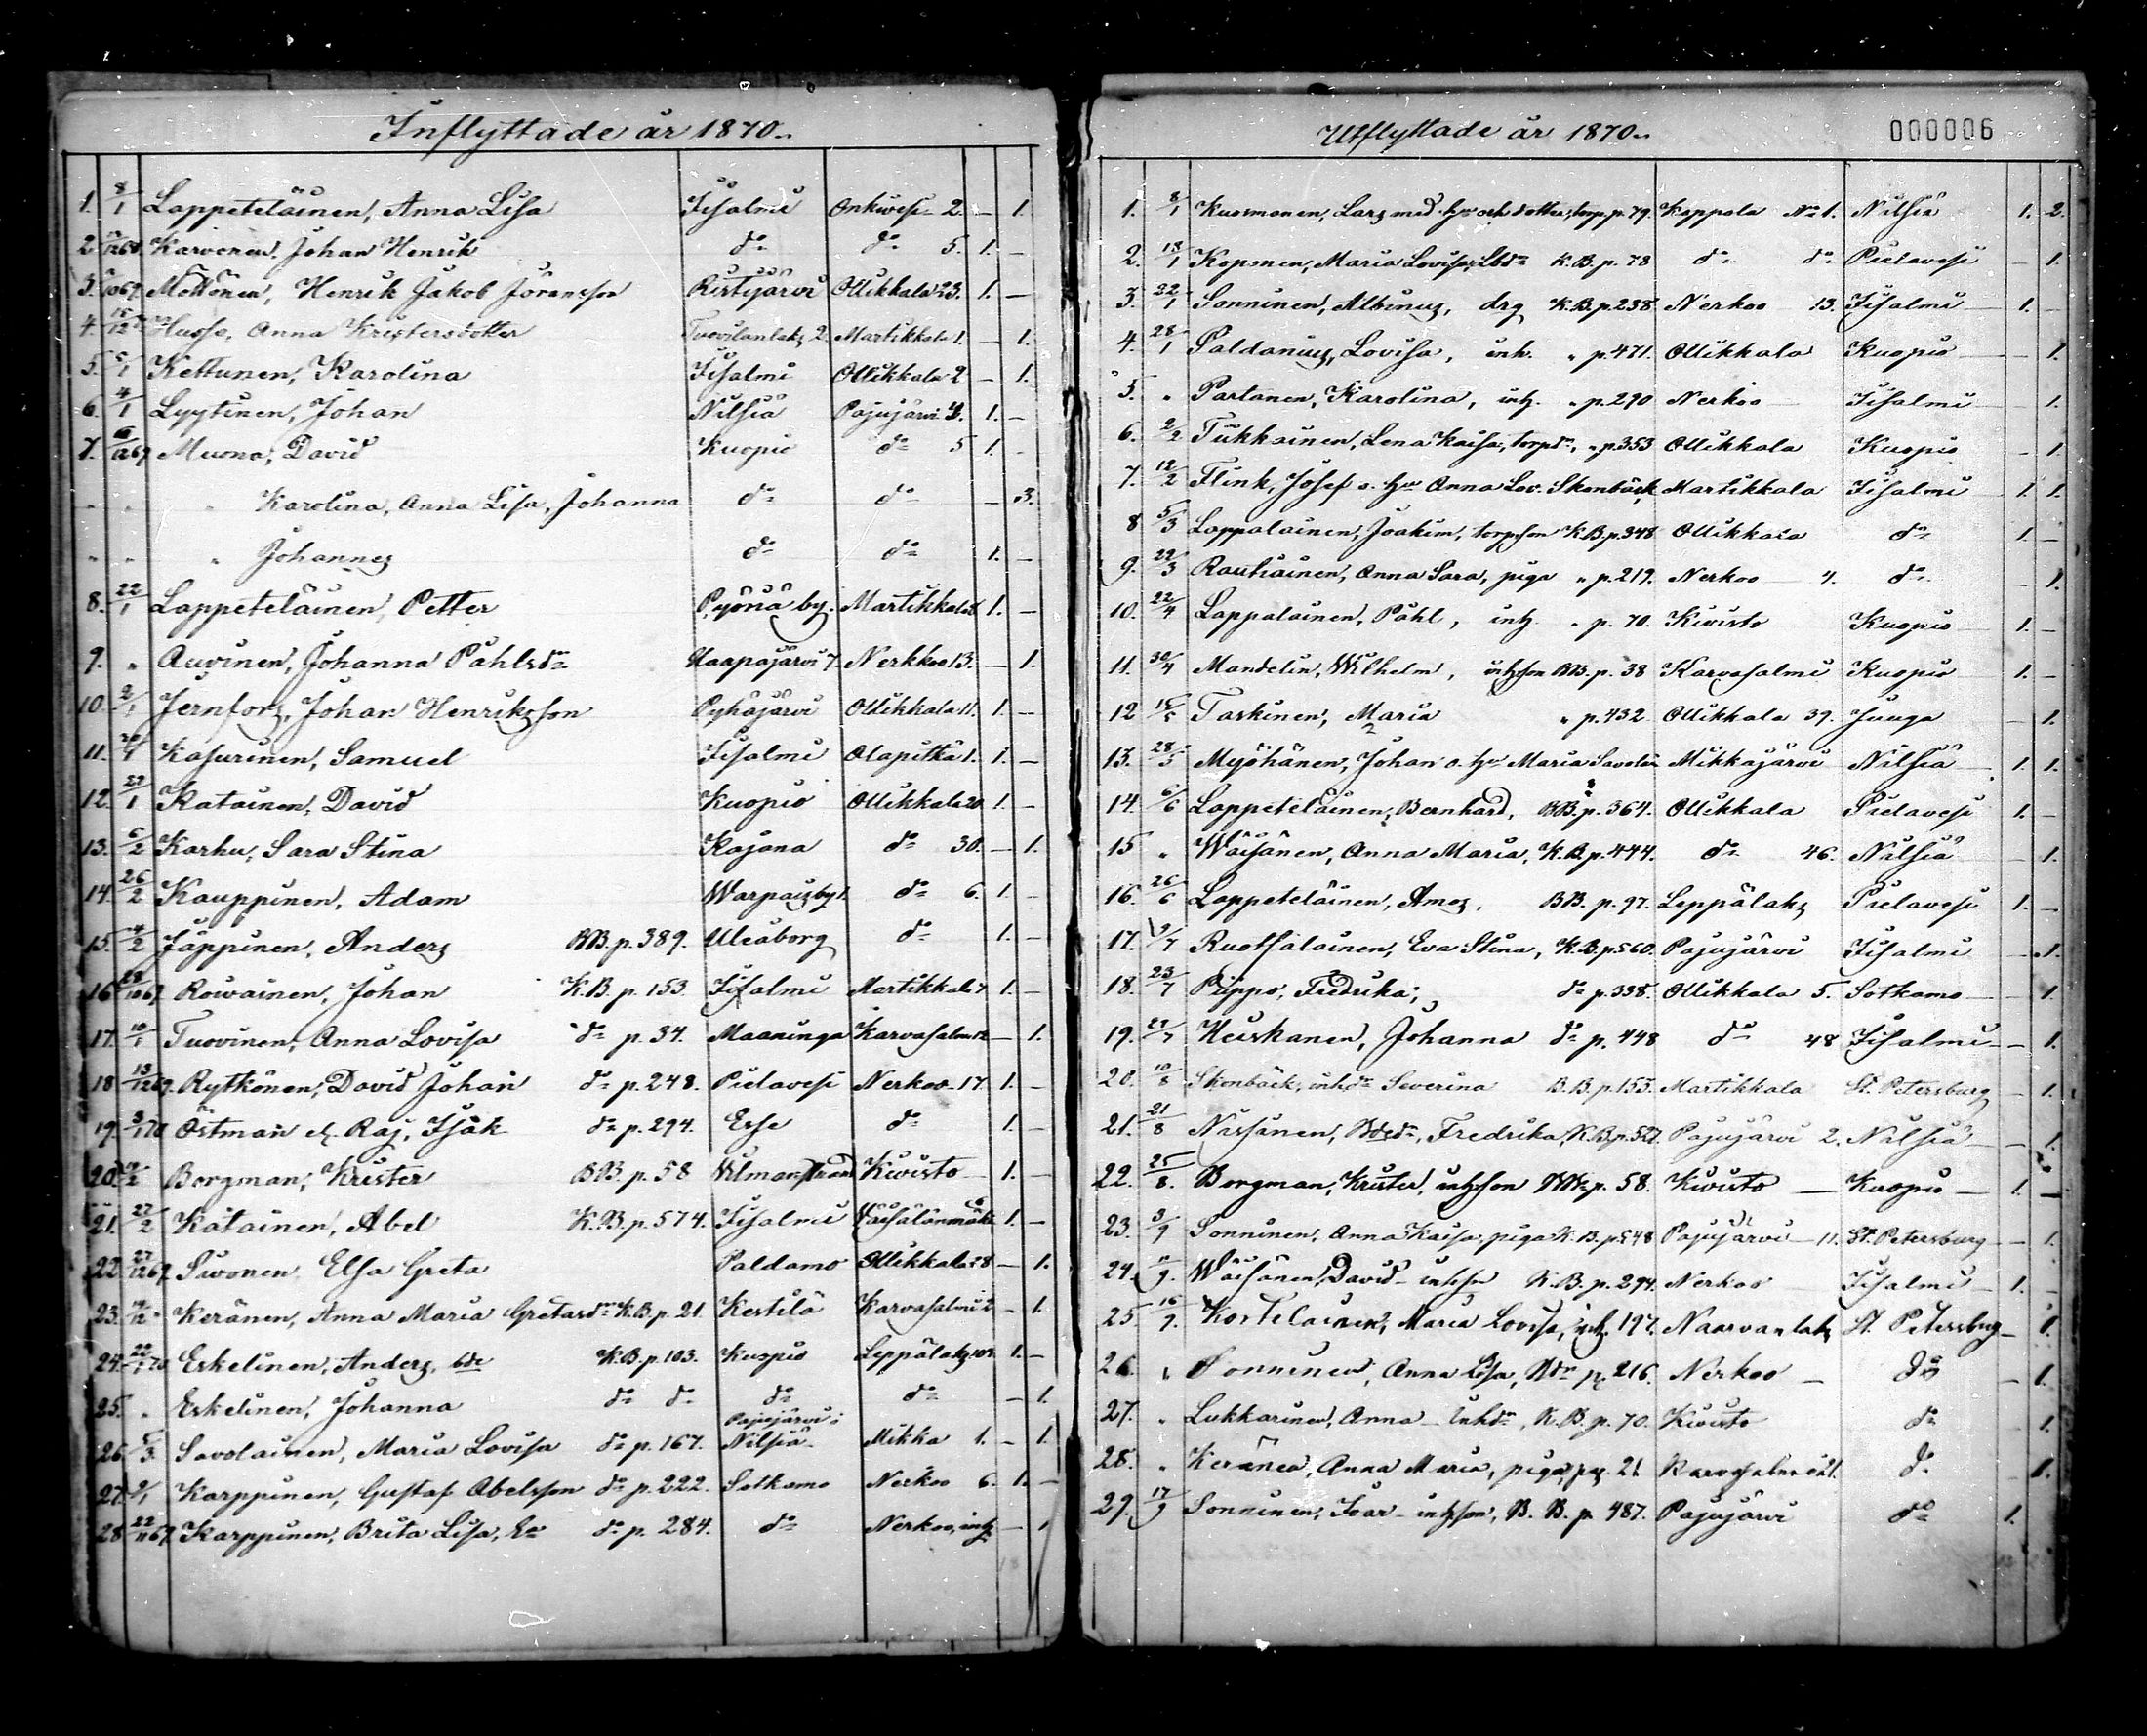 Inflyttade år 1870.
1. 8/1 Lappeteläinen, Anna Lisa Iisalmi Onkivesi 2. – 1.
2. Karvonen, Johan Henrik do do 5. 1. –
3. Möttönen, Henrik Jakob Göransson Ristijärvi Ollikkala 23. 1. –
4. Husso, Anna Kristersdotter Tuovilanlaks 2. Martikkala 1. – 1.
5. Kettunen, Karolina Iisalmi Ollikkala 2 – 1.
6. 4/1 Lyytinen, Johan Nilsiä Pajujärvi 1. –
7. Muona, David Kuopio do 5 1. –
" " " Karolina, Anna Lisa, Johanna do do – 3.
" " " Johannes do do 1. –
8. 22/1 Lappeteläinen, Petter Pyönä by. Martikkala 1. –
9. " Auvinen, Johanna Påhlsdr Haapajärvi 7. Nerkkoo 13. – 1.
10. 2/1 Jernfors, Johan Henriksson Pyhäjärvi Ollikkala 11. 1. –
11. Kasurinen, Samuel Iisalmi Olapitkä 1. 1. –
12. 22/1 Ratainen, David Kuopio Ollikkala 20 1. –
13. 6/2 Karhu, Sara Stina Kajana do 30. – 1.
14. 26/2 Kauppinen, Adam Warpaisby 1. do 6. 1. –
15. 4/2 Jäppinen, Anders BB. p. 389. Uleåborg do 1. –
16. 28/10 69 Roivainen, Johan K.B. p. 153. Iisalmi Martikkala 7 1. –
17. 10/1 Tuovinen, Anna Lovisa do p. 34. Maaninga Karvasalmi 12 – 1.
18. 13/12 69. Rytkönen, David Johan do p. 248. Pielavesi Nerkoo 17. 1. –
19. 3/1 70 Östman, Isak do p. 294. Esse do 1. –
20. Borgman, Krister BB. p. 58 Wilmanstrand Kivisto 1. –
21. 27/2 Katainen, Abel K.B. p. 574. Iisalmi Väisälänmäki 1. –
22. 27/12 69 Sivonen, Elsa Greta Paldamo Ollikkala 28 – 1.
23. Keränen, Anna Maria Gretasdr K.B. p. 21. Kestilä Karvasalmi 2 – 1.
24. 22/1 70 Eskelinen, Anders, bde K.B. p. 103. Kuopio Leppälaks 102 1. –
25. " Eskelinen, Johanna do do do do – 1.
26. 5/3 Savolainen, Maria Lovisa do p. 167. Pajujärvi; Nilsiä Mikka 1. – 1.
27. Karppinen, Gustaf Abelsson do p. 222. Sotkamo Nerkoo 6. 1. –
28. 22/11 69 Karppinen, Brita Lisa, Ea do p. 284. do Nerkoo, inh – 1
Utflyttade år 1870.
000006
1. 8/1 Kuosmanen, Lars med hu och dotter, torp. p. 79. Koppola No 1. Nilsiä 1. 2.
2. 18/1 Koponen, Maria Lovisa, Lbdr K.B. p. 78 do do Pielavesi – 1.
3. 22/1 Sonninen, Albinus, drg K.B. p. 238. Nerkoo 13. Iisalmi 1. –
4. 28/1 Paldanius, Lovisa, inh. " p. 471. Ollikkala Kuopio – 1.
5. " Partanen, Karolina, inh. " p. 290 Nerkoo Iisalmi – 1.
6. 2/2 Tiikkainen, Lena Kaisa, torpdr, " p. 353 Ollikkala Kuopio – 1.
7. 12/2 Flink, Josef o. hu Anna Lov. Skonbäck Martikkala Iisalmi 1. 1.
8 5/3 Lappalainen, Joakim, torpson K.B. p. 348 Ollikkala do 1. –
9. 22/3 Rautiainen, Anna Sara, piga " p. 219. Nerkoo 4. do – 1.
10. 22/4 Lappalainen, Påhl, inh. " p. 70. Kivisto Kuopio 1. –
11. 30/4 Mandelin, Wilhelm, inhson BB. p. 38 Karvasalmi Kuopio 1. –
12 15/5 Taskinen, Maria " p. 432 Ollikkala 39. Juuga – 1.
13. 28/5 Myöhänen, Johan o. hu Maria Savolain Mikkajärvi Nilsiä 1. 1.
14. 6/6 Lappeteläinen, Bernhard, BB. p. 364. Ollikkala Pielavesi 1. –
15 " Wäisänen, Anna Maria, K.B. p. 444. do 46. Nilsiä – 1.
16. 26/6 Lappeteläinen, Amos, BB. p. 97. Leppälaks Pielavesi 1. –
17. 9/7 Ruotsalainen, Eva Stina, K.B. p. 560. Pajujärvi Iisalmi – 1.
18. 23/7 Piippo, Fredrika, do p. 338. Ollikkala 5. Sotkamo – 1.
19. 27/7 Heiskanen, Johanna do p. 448 do 48 Iisalmi – 1.
20. 10/8 Skonbäck, inhdr Severina B.B. p. 155. Martikkala St. Petersburg – 1.
21. 21/8 Nissinen, Bdedr, Fredrika, K.B. p. 527. Pajujärvi 2. Nilsiä – 1.
22. 25/8. Borgman, Krister, inhson BB. p. 58. Kivisto – Kuopio 1. –
23. 3/9 Sonninen, Anna Kaisa, piga K.B. p. 548 Pajujärvi 11. St. Petersburg – 1.
24. 11/9. Wäisänen, David inhsn K.B. p. 294. Nerkoo Iisalmi 1. –
25. 16/9. Kortelainen, Maria Lovisa, inh. 197. Naarvanlaks St. Petersburg – 1.
26. " Sonninen, Anna Lisa, Bdr p. 216. Nerkoo – do – 1.
27. " Lukkarinen, Anna inhdr, K.B. p. 70. Kivisto do 1.
28. " Keränen, Anna Maria, piga, pg. 21 Karvasalmi 21. do – 1.
29. 17/9 Sonninen, Ivar inhson, B.B. p. 487. Pajujärvi do 1.